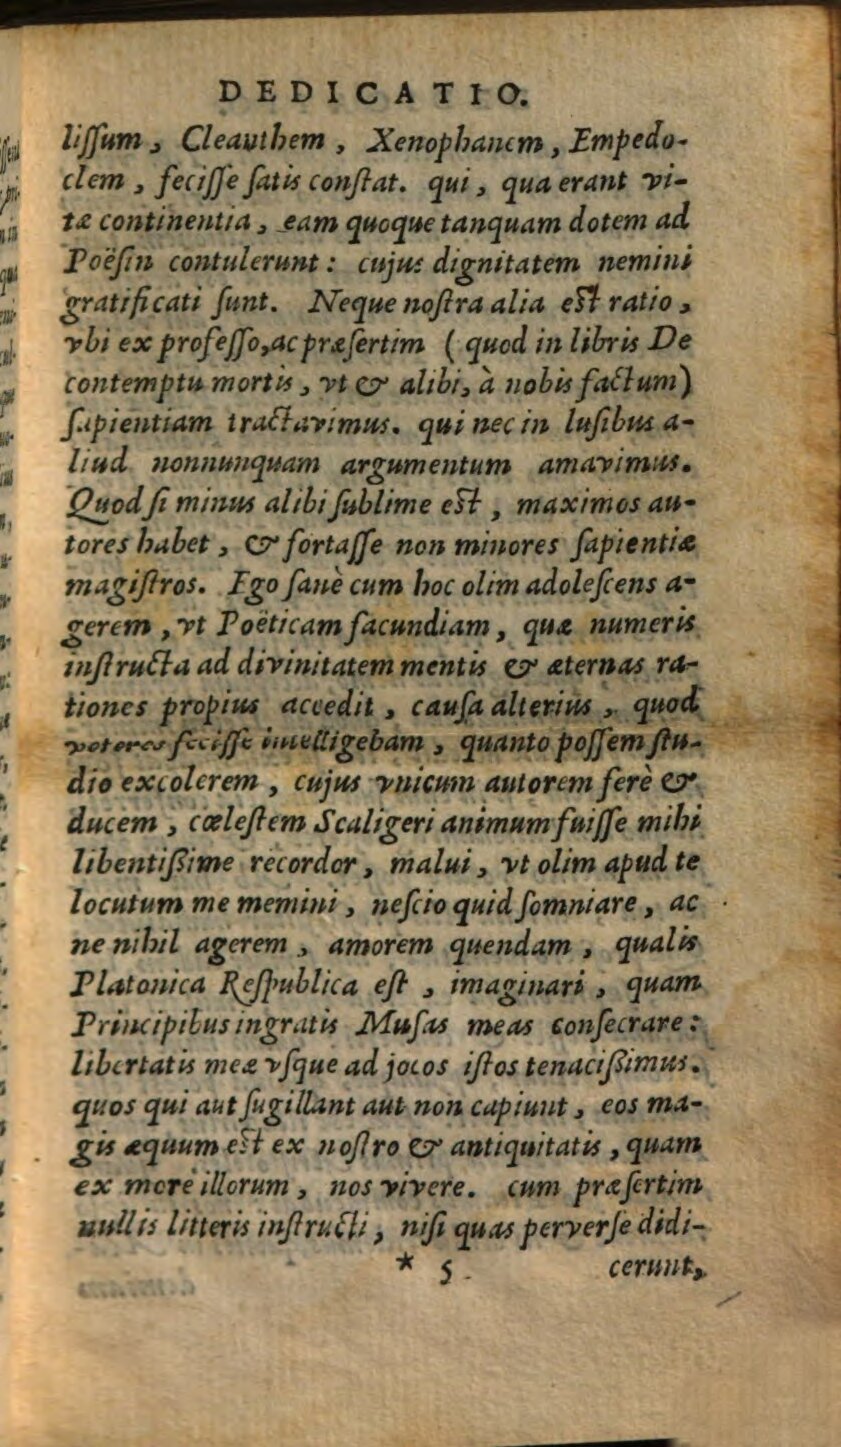 DEDICATIO.
liſſum, Cleanthem, Xenophanem, Empedo-
clem, feciſſe ſatis conſtat. qui, qua erant vi-
tæ continentia, eam quoque tanquam dotem ad
Poëſin contulerunt: cujus dignitatem nemini
gratificati ſunt. Neque noſtra alia eſt ratio,
vbi ex profeſſo, ac præſertim (quod in libris De
contemptu mortis, vt & alibi, à nobis factum)
ſapientiam tractavimus. qui nec in luſibus a-
liud nonnunquam argumentum amavimus.
Quod ſi minus alibi ſublime eſt, maximos au-
tores habet, & fortaſſe non minores ſapientiæ
magiſtros. Ego ſanè cum hoc olim adoleſcens a-
gerem, vt Poëticam facundiam, quæ numeris
inſtructa ad divinitatem mentis & æternas ra-
tiones propius accedit, cauſa alterius, quod
veteres feciſſe intelligebam, quanto poſſem ſtu-
dio excolerem, cujus vnicum autorem ferè &
ducem, cœleſtem Scaligeri animum fuiſſe mihi
libentiſſime recordor, malui, vt olim apud te
locutum me memini, neſcio quid ſomniare, ac
ne nihil agerem, amorem quendam, qualis
Platonica Reſpublica eſt, imaginari, quam
Principibus ingratis Muſas meas conſecrare:
libertatis meæ vſque ad jocos iſtos tenaciſſimus.
quos qui aut ſugillant aut non capiunt, eos ma-
gis æquum eſt ex noſtro & antiquitatis, quam
ex more illorum, nos vivere. cum præſertim
nullis litteris inſtructi, niſi quas perverſe didi-
* 5 cerunt,